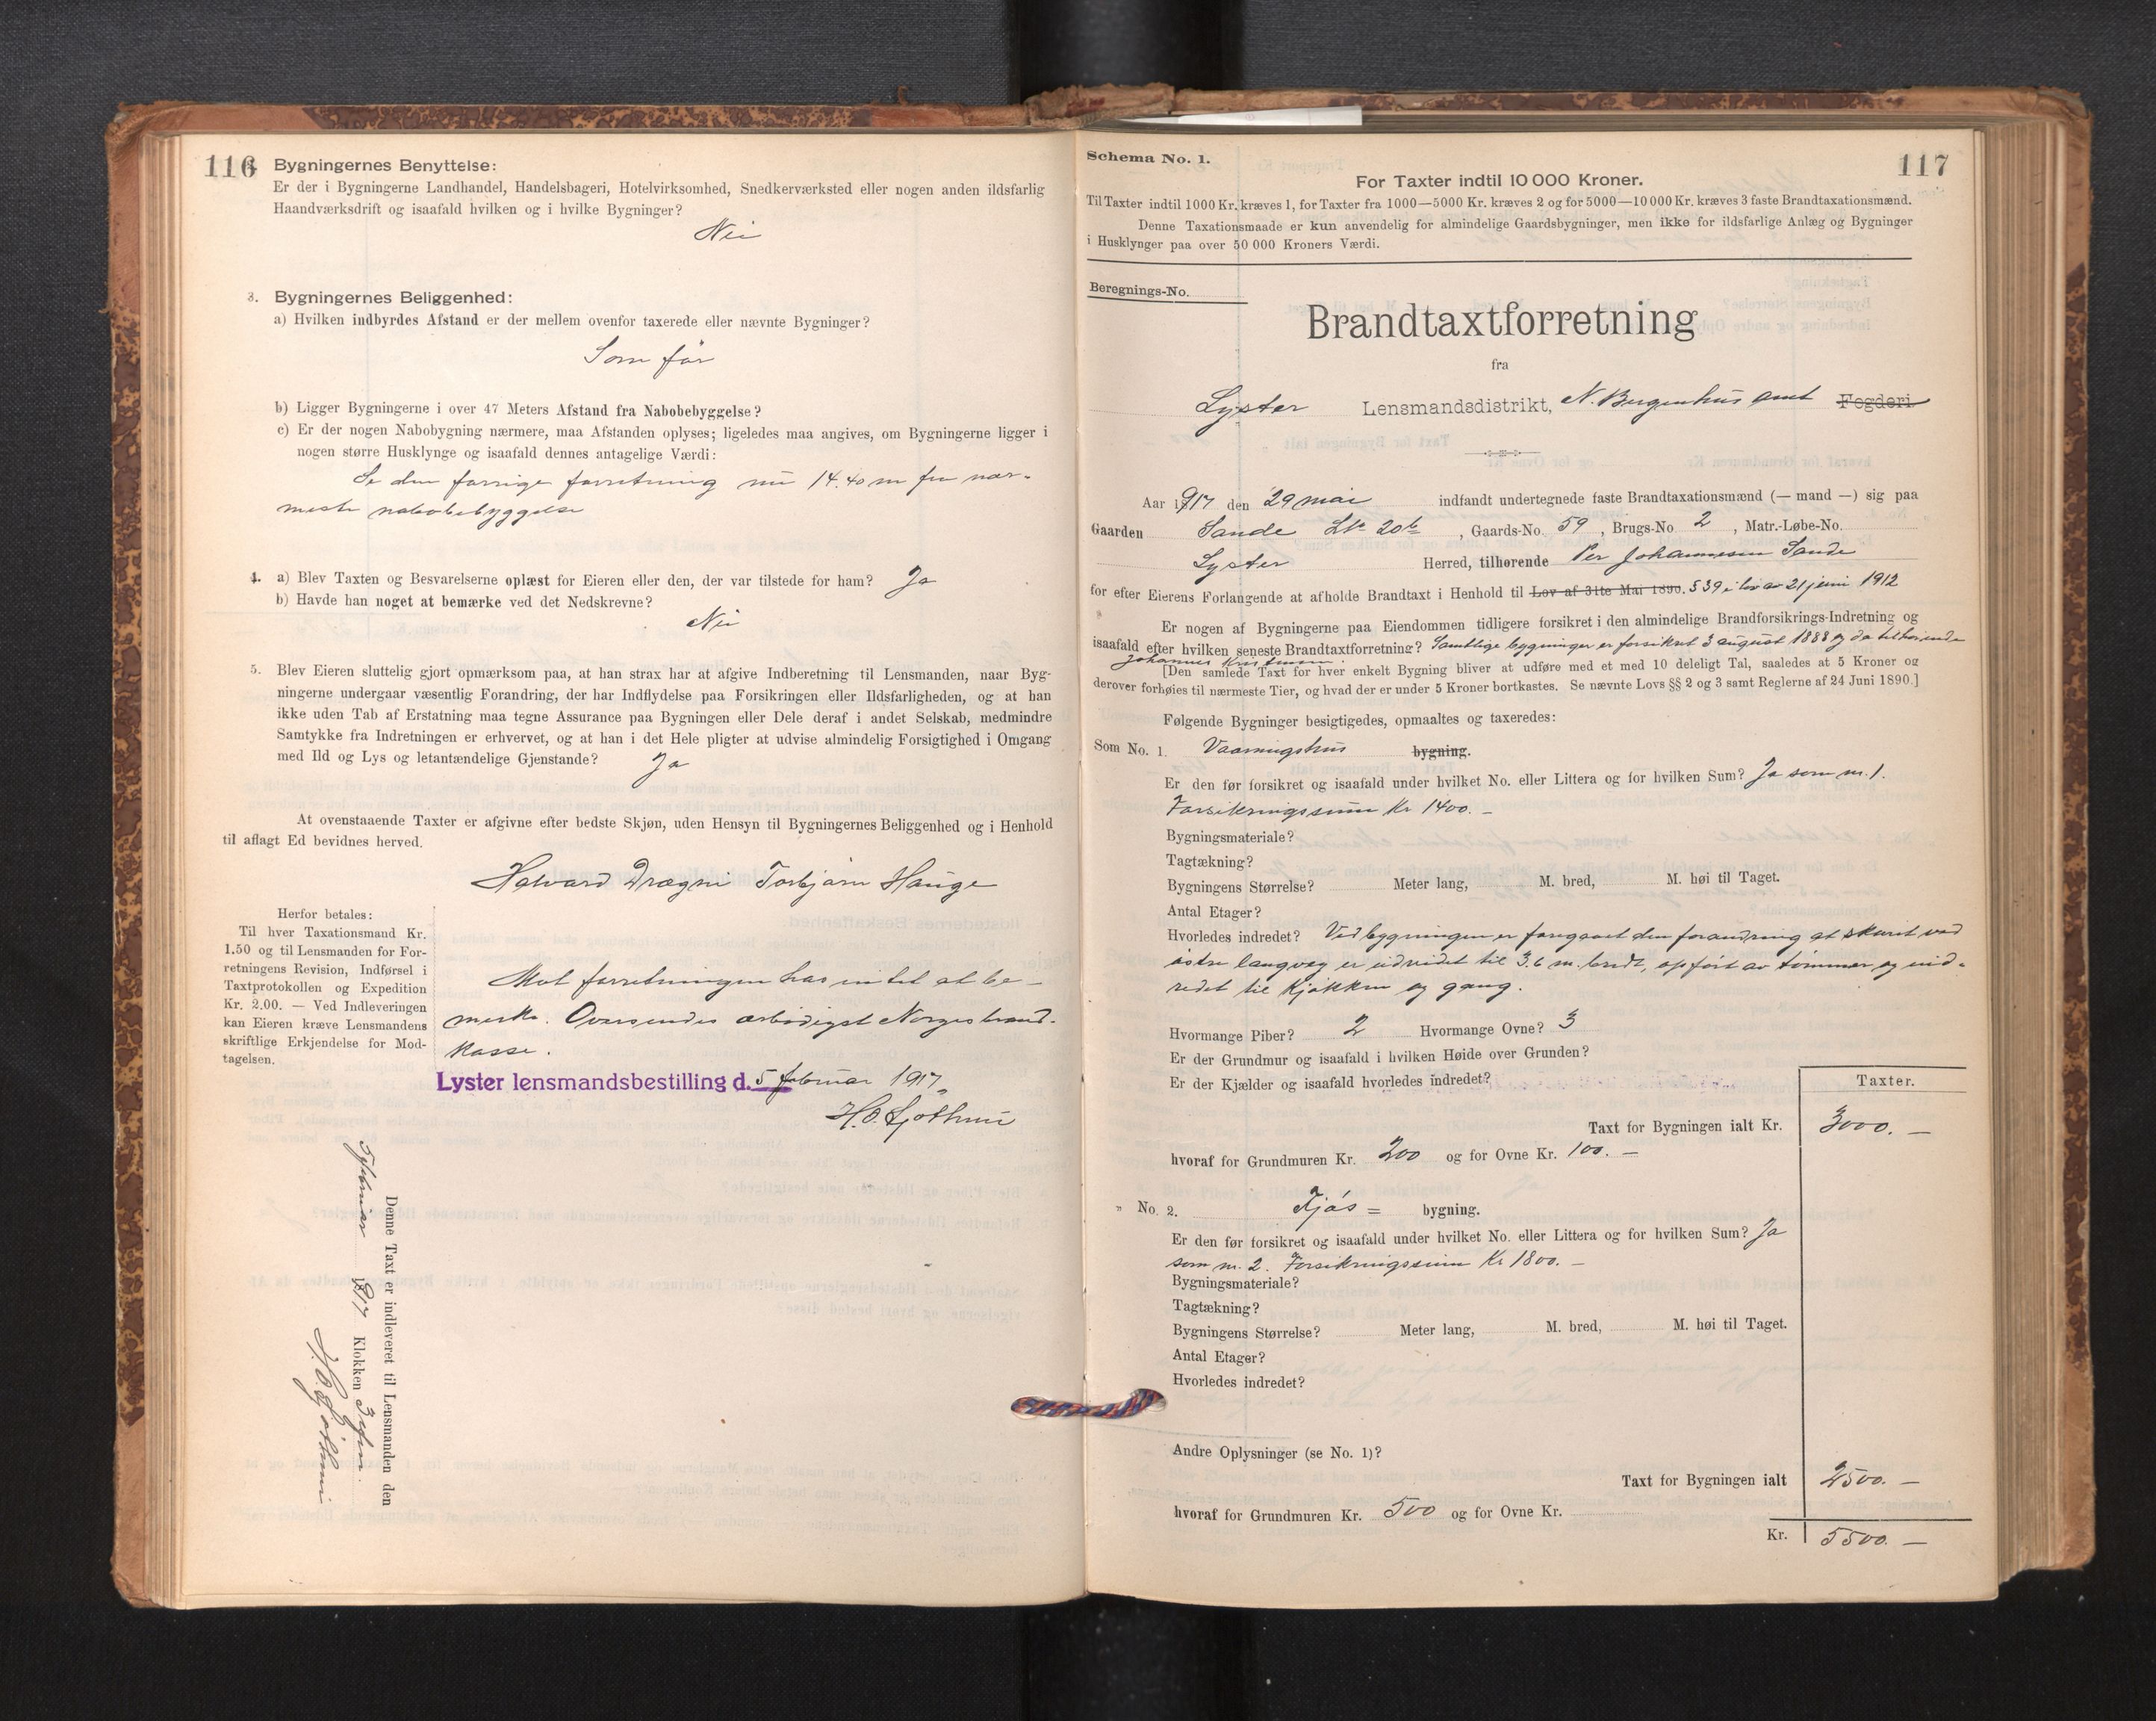 116
Bygningernes Benyttelse:
Er der i Bygningerne Landhandel, Handelsbageri, Hotelvirksomhed, Snedkerværksted eller nogen anden ildsfarlig
Haandværksdrift og isaafald hvilken og i hvilke Bygninger?
Nei
3. Bygningernes Beliggenhed:
a) Hvilken indbyrdes Afstand er der mellem ovenfor taxerede eller nævnte Bygninger?
Som før
b) Ligger Bygningerne i over 47 Meters Afstand fra Nabobebyggelse?
c) Er der nogen Nabobygning nærmere, maa Afstanden oplyses; ligeledes maa angives, om Bygningerne ligger i
nogen større Husklynge og isaafald dennes antagelige Værdi:
Se den forrige forretning nu 14.40 m fra nær-
meste nabobebyggelse
4. a) Blev Taxten og Besvarelserne oplæst for Eieren eller den, der var tilstede for ham? Ja
b) Havde han noget at bemærke ved det Nedskrevne?
Nei
5. Blev Eieren sluttelig gjort opmærksom paa, at han strax har at afgive Indberetning til Lensmanden, naar Byg-
ningerne undergaar væsentlig Forandring, der har Indflydelse paa Forsikringen eller Ildsfarligheden, og at han
ikke uden Tab af Erstatning maa tegne Assurance paa Bygningen eller Dele deraf i andet Selskab, medmindre
Samtykke fra Indretningen er erhvervet, og at han i det Hele pligter at udvise almindelig Forsigtighed i Omgang
med Ild og Lys og letantændelige Gjenstande? Ja
At ovenstaaende Taxter er afgivne efter bedste Skjøn, uden Hensyn til Bygningernes Beliggenhed og i Henhold
til aflagt Ed bevidnes herved.
Halvard Drægni Torbjørn Hauge
Herfor betales:
Til hver Taxationsmand Kr.
1.50 og til Lensmanden for For-
retningens Revision, Indførsel i
Taxtprotokollen og Expedition
Kr. 2.00. — Ved Indleveringen
kan Eieren kræve Lensmandens
skriftlige Erkjendelse for Mod-
tagelsen.
Mot forretningen has intet at be-
merke. Oversendes ærbødigst Norges brand-
kasse.
Lyster lensmandsbestilling d. 5 februar 1917
Denne Taxt er indleveret til Lensmanden den
februar 1917 Klokken 3
Schema No. 1.
117
For Taxter indtil 10 000 Kroner.
Til Taxter indtil 1000 Kr. kræves 1, for Taxter fra 1000—5000 Kr. kræves 2 og for 5000—10 000 Kr. kræves 3 faste Brandtaxationsmænd.
Denne Taxationsmaade er kun anvendelig for almindelige Gaardsbygninger, men ikke for ildsfarlige Anlæg og Bygninger
i Husklynger paa over 50 000 Kroners Værdi.
Beregnings-No.
Brandtaxtforretning
fra
Lyster Lensmandsdistrikt, N. Bergenhus amt Fogderi
Aar 1917 den 29 mai indfandt undertegnede faste Brandtaxationsmænd (— mand —) sig paa
Gaarden Sande Lt 20b, Gaards-No. 59, Brugs-No 2, Matr.-Løbe-No.
Lyster Herred, tilhørende Per Johannesen Sande
for efter Eierens Forlangende at afholde Brandtaxt i Henhold til Lov af 31te Mai 1890. § 39 i lov av 21 juni 1912
Er nogen af Bygningerne paa Eiendommen tidligere forsikret i den almindelige Brandforsikrings-Indretning og
isaafald efter hvilken seneste Brandtaxtforretning? Samtlige bygninger er forsikret 3 august 1888 og da tilhørende
Johannes
[Den samlede Taxt for hver enkelt Bygning bliver at udføre med et med 10 deleligt Tal, saaledes at 5 Kroner og
derover forhøies til nærmeste Tier, og hvad der er under 5 Kroner bortkastes. Se nævnte Lovs §§ 2 og 3 samt Reglerne af 24 Juni 1890.]
Følgende Bygninger besigtigedes, opmaaltes og taxeredes:
Som No. 1. Vaaningshus bygning.
Er den før forsikret og isaafald under hvilket No. eller Littera og for hvilken Sum? Ja som nr. 1.
Forsikringssum Kr 1400. –
Bygningsmateriale?
Tagtækning?
Bygningens Størrelse? Meter lang, M. bred, M. høi til Taget.
Antal Etager?
Hvorledes indredet? Ved bygningen er foregaaet den forandring at skuret ved
østre langvæg er utvidet til 3.6 m. bredt, opført av tømmer og ind-
redet til Kjøkken og gang.
Hvormange Piber? 2 Hvormange Ovne? 3
Er der Grundmur og isaafald i hvilken Høide over Grunden?
Er der Kjælder og isaafald hvorledes indredet?
Taxter.
Taxt for Bygningen ialt Kr. 3000. –
hvoraf for Grundmuren Kr. 200 og for Ovne Kr. 100. –
" No. 2. Fjøs = bygning.
Er den før forsikret og isaafald under hvilket No. eller Littera og for hvilken Sum? Ja
som nr. 2. Forsikringssum Kr 1800. –
Bygningsmateriale?
Tagtækning?
Bygningens Størrelse? Meter lang, M. bred, M. høi til Taget.
Antal Etager?
Hvorledes indredet?
Andre Oplysninger (se No. 1)?
Taxt for Bygningen ialt 2500. –
hvoraf for Grundmuren Kr. 500 og for Ovne Kr.
Kr. 5500. –